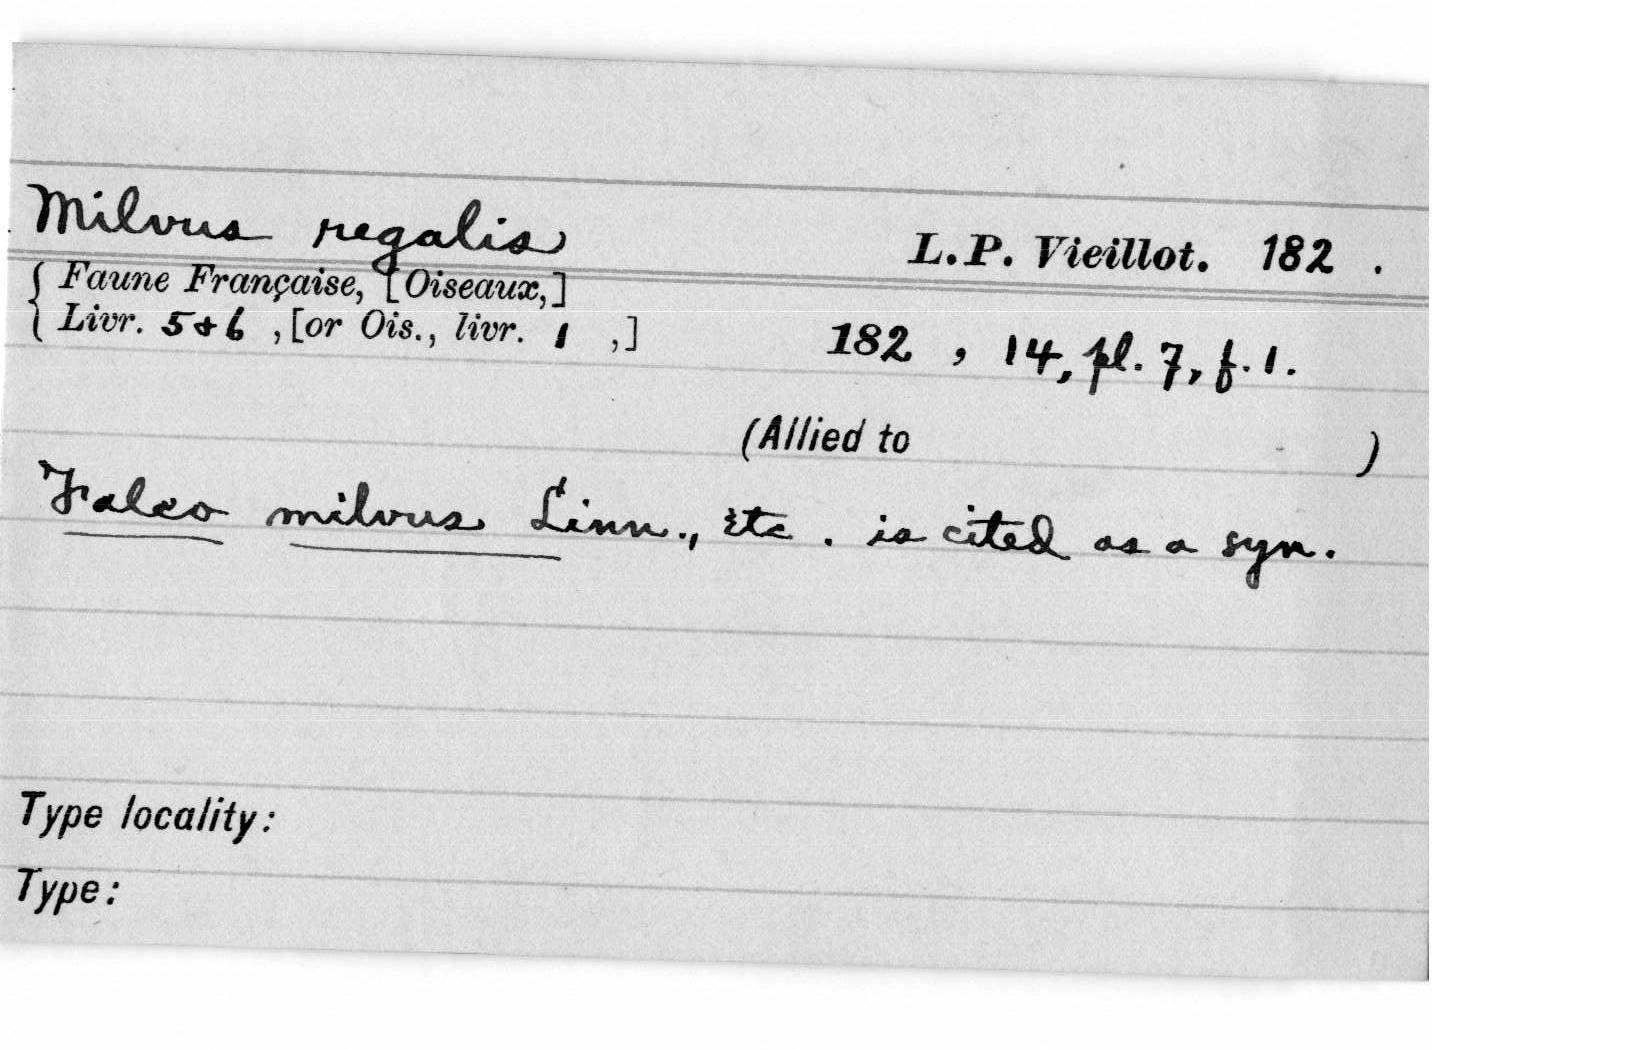 Milvus regalis L.P. Vieillot. 182 .
Faune Française, [Oiseaux,]
Livr. 5 & 6 , [or Ois., livr. 1 ,] 182 , 14, pl. 7, f. 1.
(Allied to )
Falco milvus Linn., etc. is cited as a syn.
Type locality:
Type: